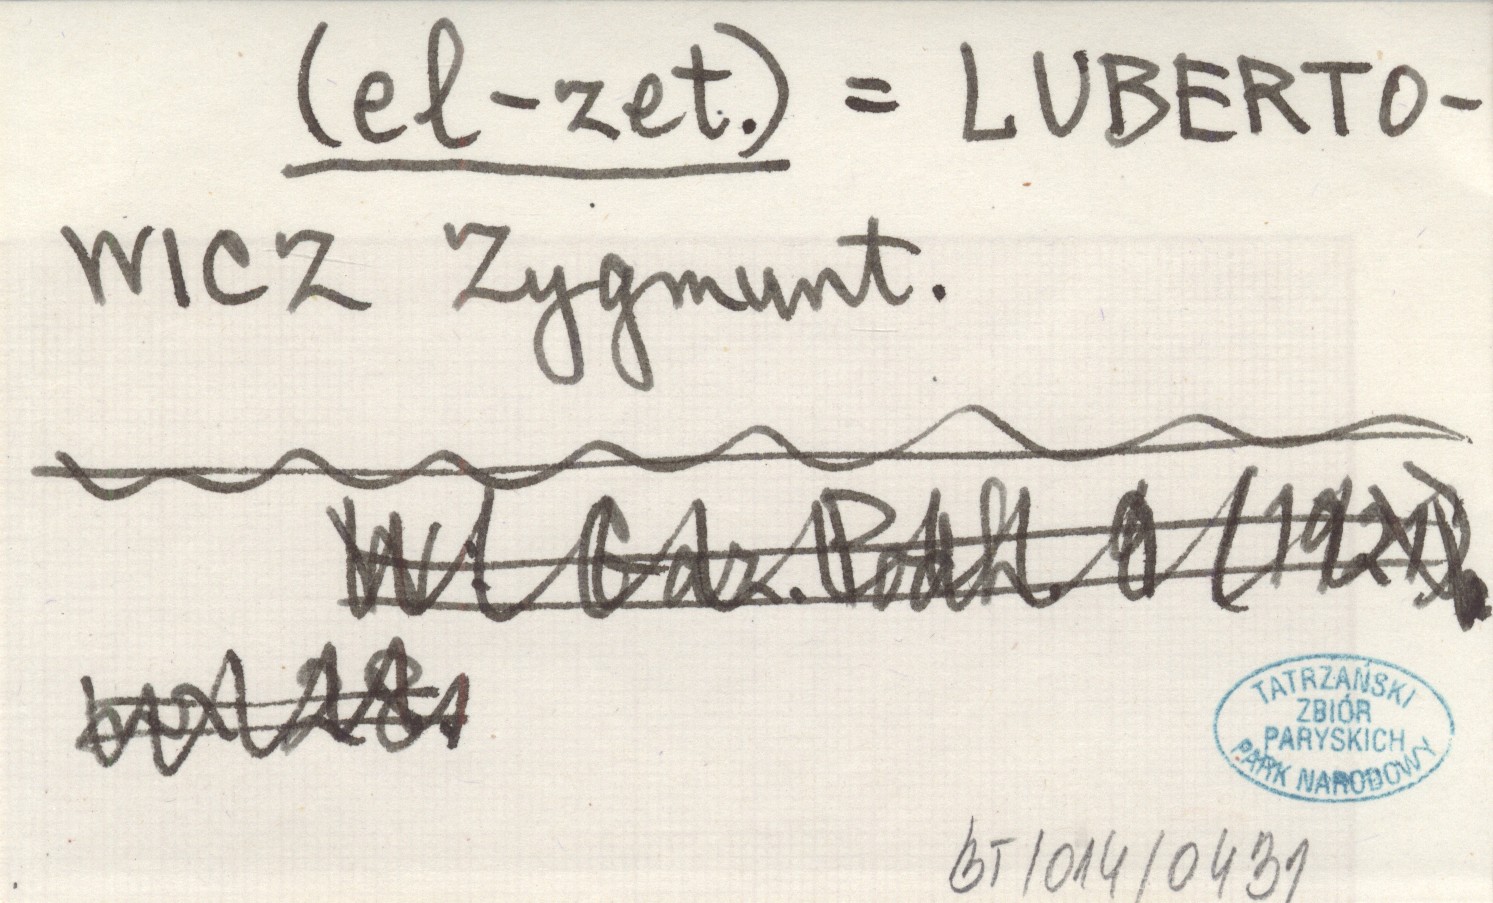 (el-zet.) = LUBERTO-
WICZ Zygmunt.
W: Gaz. Podh. 9 (1921),
28.
TATRZAŃSKI
ZBIÓR
PARYSKICH
PARK NARODOWY
BT/014/0431